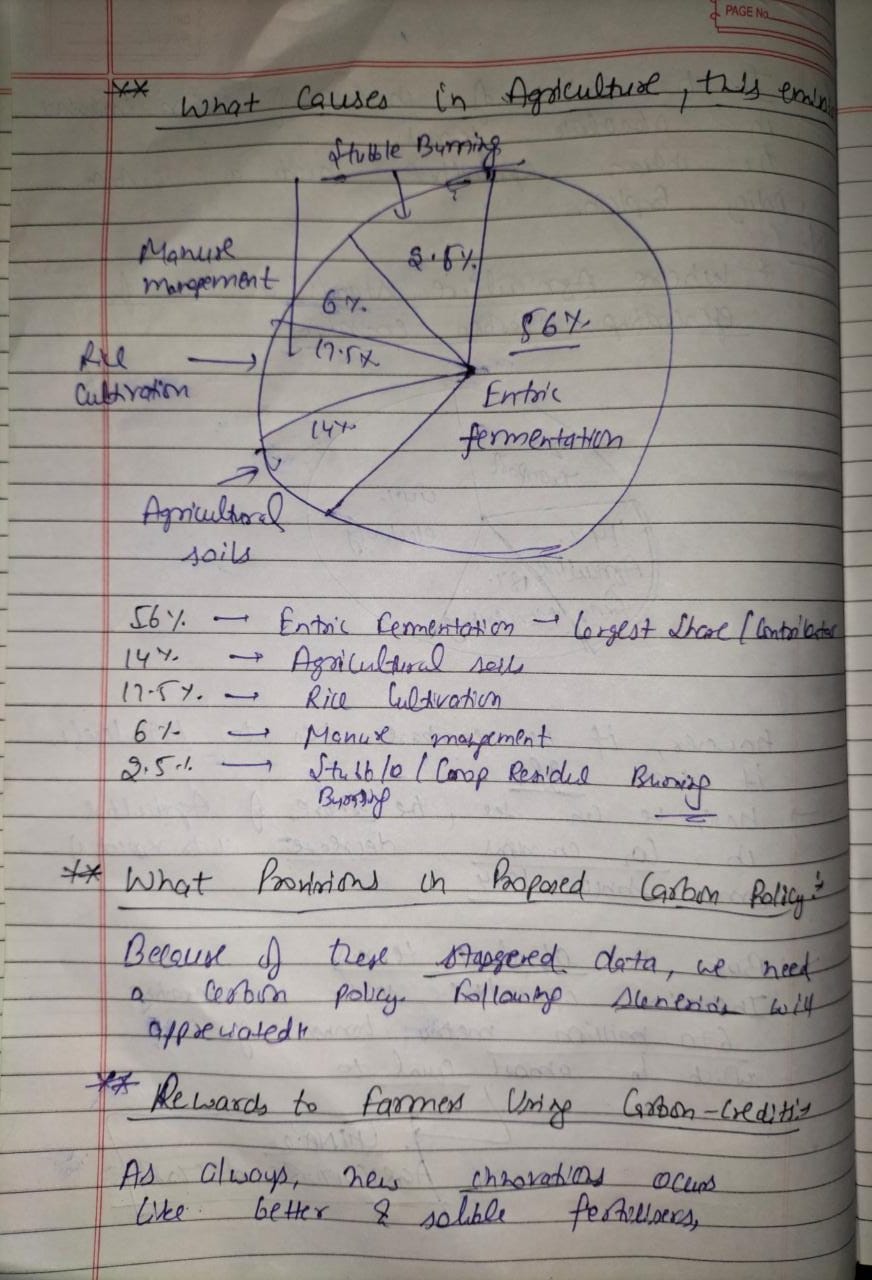 PAGE No.
** What Causes in Agriculture, this
Stubble Burning
Manure
mangement
2.5%
6%
56%
17.5%
Rice
Cultivation
Entric
fermentation
14%
Agricultural
soils
56% → Entric Fermentation → Largest Share / Contributor
14% → Agricultural soils
17.5% → Rice Cultivation
6% → Manure mangement
2.5% → Stubble / Crop Residue Burning
Burning
** What Provisions in Proposed Carbon Policy:
Because of these staggered data, we need
a Carbon policy. Following scenerios will
appreciated:
** Rewards to farmers Using Carbon-Credits
As always, new innovations occurs
like better & soluble fertilisers,